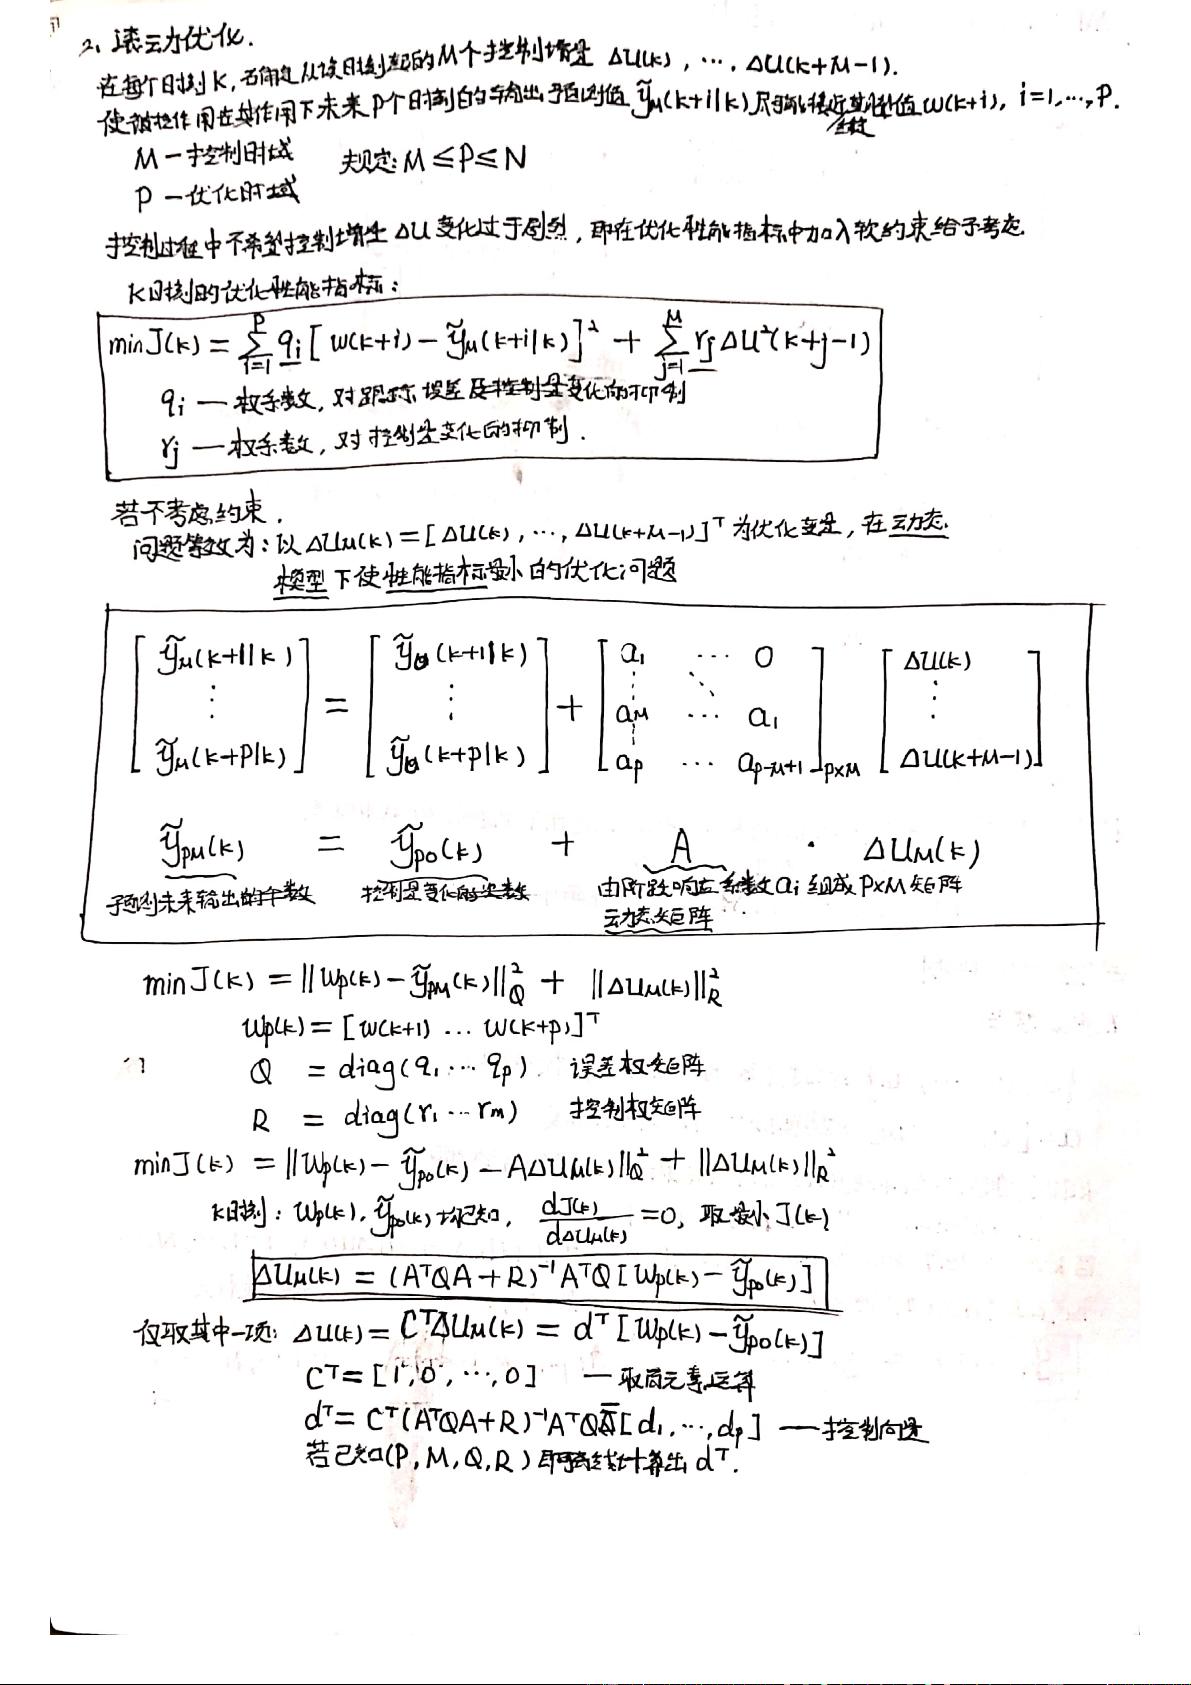 2、滚动优化.
在每个时刻K,要确定从该时刻起的M个控制增量 ΔU(k), …, ΔU(k+M-1).
使被控作用在其作用下未来P个时刻的输出预测值 ỹ_M(k+i|k)尽可能接近期望值w(k+i), i=1,…,P.
M — 控制时域 规定: M≤P≤N
P — 优化时域
控制过程中不希望控制增量ΔU变化过于剧烈,即在优化性能指标中加入软约束给予考虑
K时刻的优化性能指标:
min J(k) = Σ_{i=1}^{P} q_i [w(k+i) - ỹ_M(k+i|k)]² + Σ_{j=1}^{M} r_j ΔU²(k+j-1)
q_i — 权系数,对跟踪误差及控制量变化的抑制
r_j — 权系数,对控制量变化的抑制.
若不考虑约束.
问题等效为:以ΔU_M(k)=[ΔU(k), …, ΔU(k+M-1)]ᵀ为优化变量,在动态
模型下使性能指标最小的优化问题
[ỹ_M(k+1|k) ⋮ ỹ_M(k+P|k)] = [ỹ_0(k+1|k) ⋮ ỹ_0(k+P|k)] + [a_1 ⋯ 0 ⋮ ⋱ a_M ⋯ a_1 ⋮ a_P ⋯ a_{P-M+1}]_{P×M} [ΔU(k) ⋮ ΔU(k+M-1)]
ỹ_{PM}(k) = ỹ_{P0}(k) + A · ΔU_M(k)
预测未来输出的个数 控制量变化的次数 由阶跃响应系数a_i组成P×M矩阵
动态矩阵
min J(k) = ||w_P(k) - ỹ_{PM}(k)||²_Q + ||ΔU_M(k)||²_R
w_P(k) = [w(k+1) … w(k+P)]ᵀ
Q = diag(q_1 … q_P) 误差权矩阵
R = diag(r_1 … r_m) 控制权矩阵
min J(k) = ||w_P(k) - ỹ_{P0}(k) - AΔU_M(k)||²_Q + ||ΔU_M(k)||²_R
K时刻: w_P(k), ỹ_{P0}(k)均已知, dJ(k)/dΔU_M(k) = 0, 取最小J(k)
ΔU_M(k) = (AᵀQA+R)⁻¹AᵀQ[w_P(k) - ỹ_{P0}(k)]
仅取其中一项: ΔU(k) = CᵀΔU_M(k) = dᵀ[w_P(k) - ỹ_{P0}(k)]
Cᵀ = [1, 0, …, 0] — 取首元素运算
dᵀ = Cᵀ(AᵀQA+R)⁻¹AᵀQ [d_1, …, d_P] — 控制向量
若已知(P, M, Q, R)即可离线计算出dᵀ.